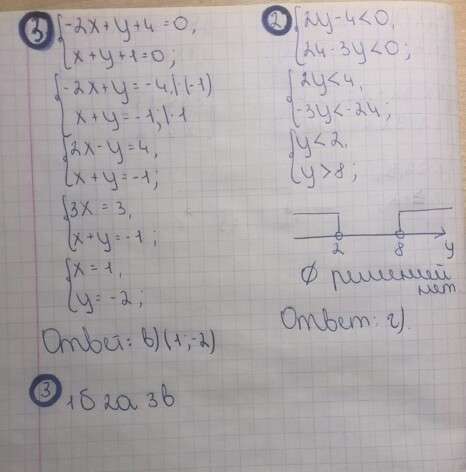 3) { -2x + y + 4 = 0,
{ x + y + 1 = 0;
{ -2x + y = -4, | (-1)
{ x + y = -1, | · 1
{ 2x - y = 4,
{ x + y = -1;
{ 3x = 3,
{ x + y = -1;
{ x = 1,
{ y = -2;
Ответ: в) (1; -2)
3) 1б 2а 3в
2) { 2y - 4 < 0,
{ 24 - 3y < 0;
{ 2y < 4,
{ -3y < -24;
{ y < 2,
{ y > 8;
2 8 y
∅ решений
нет
Ответ: г).